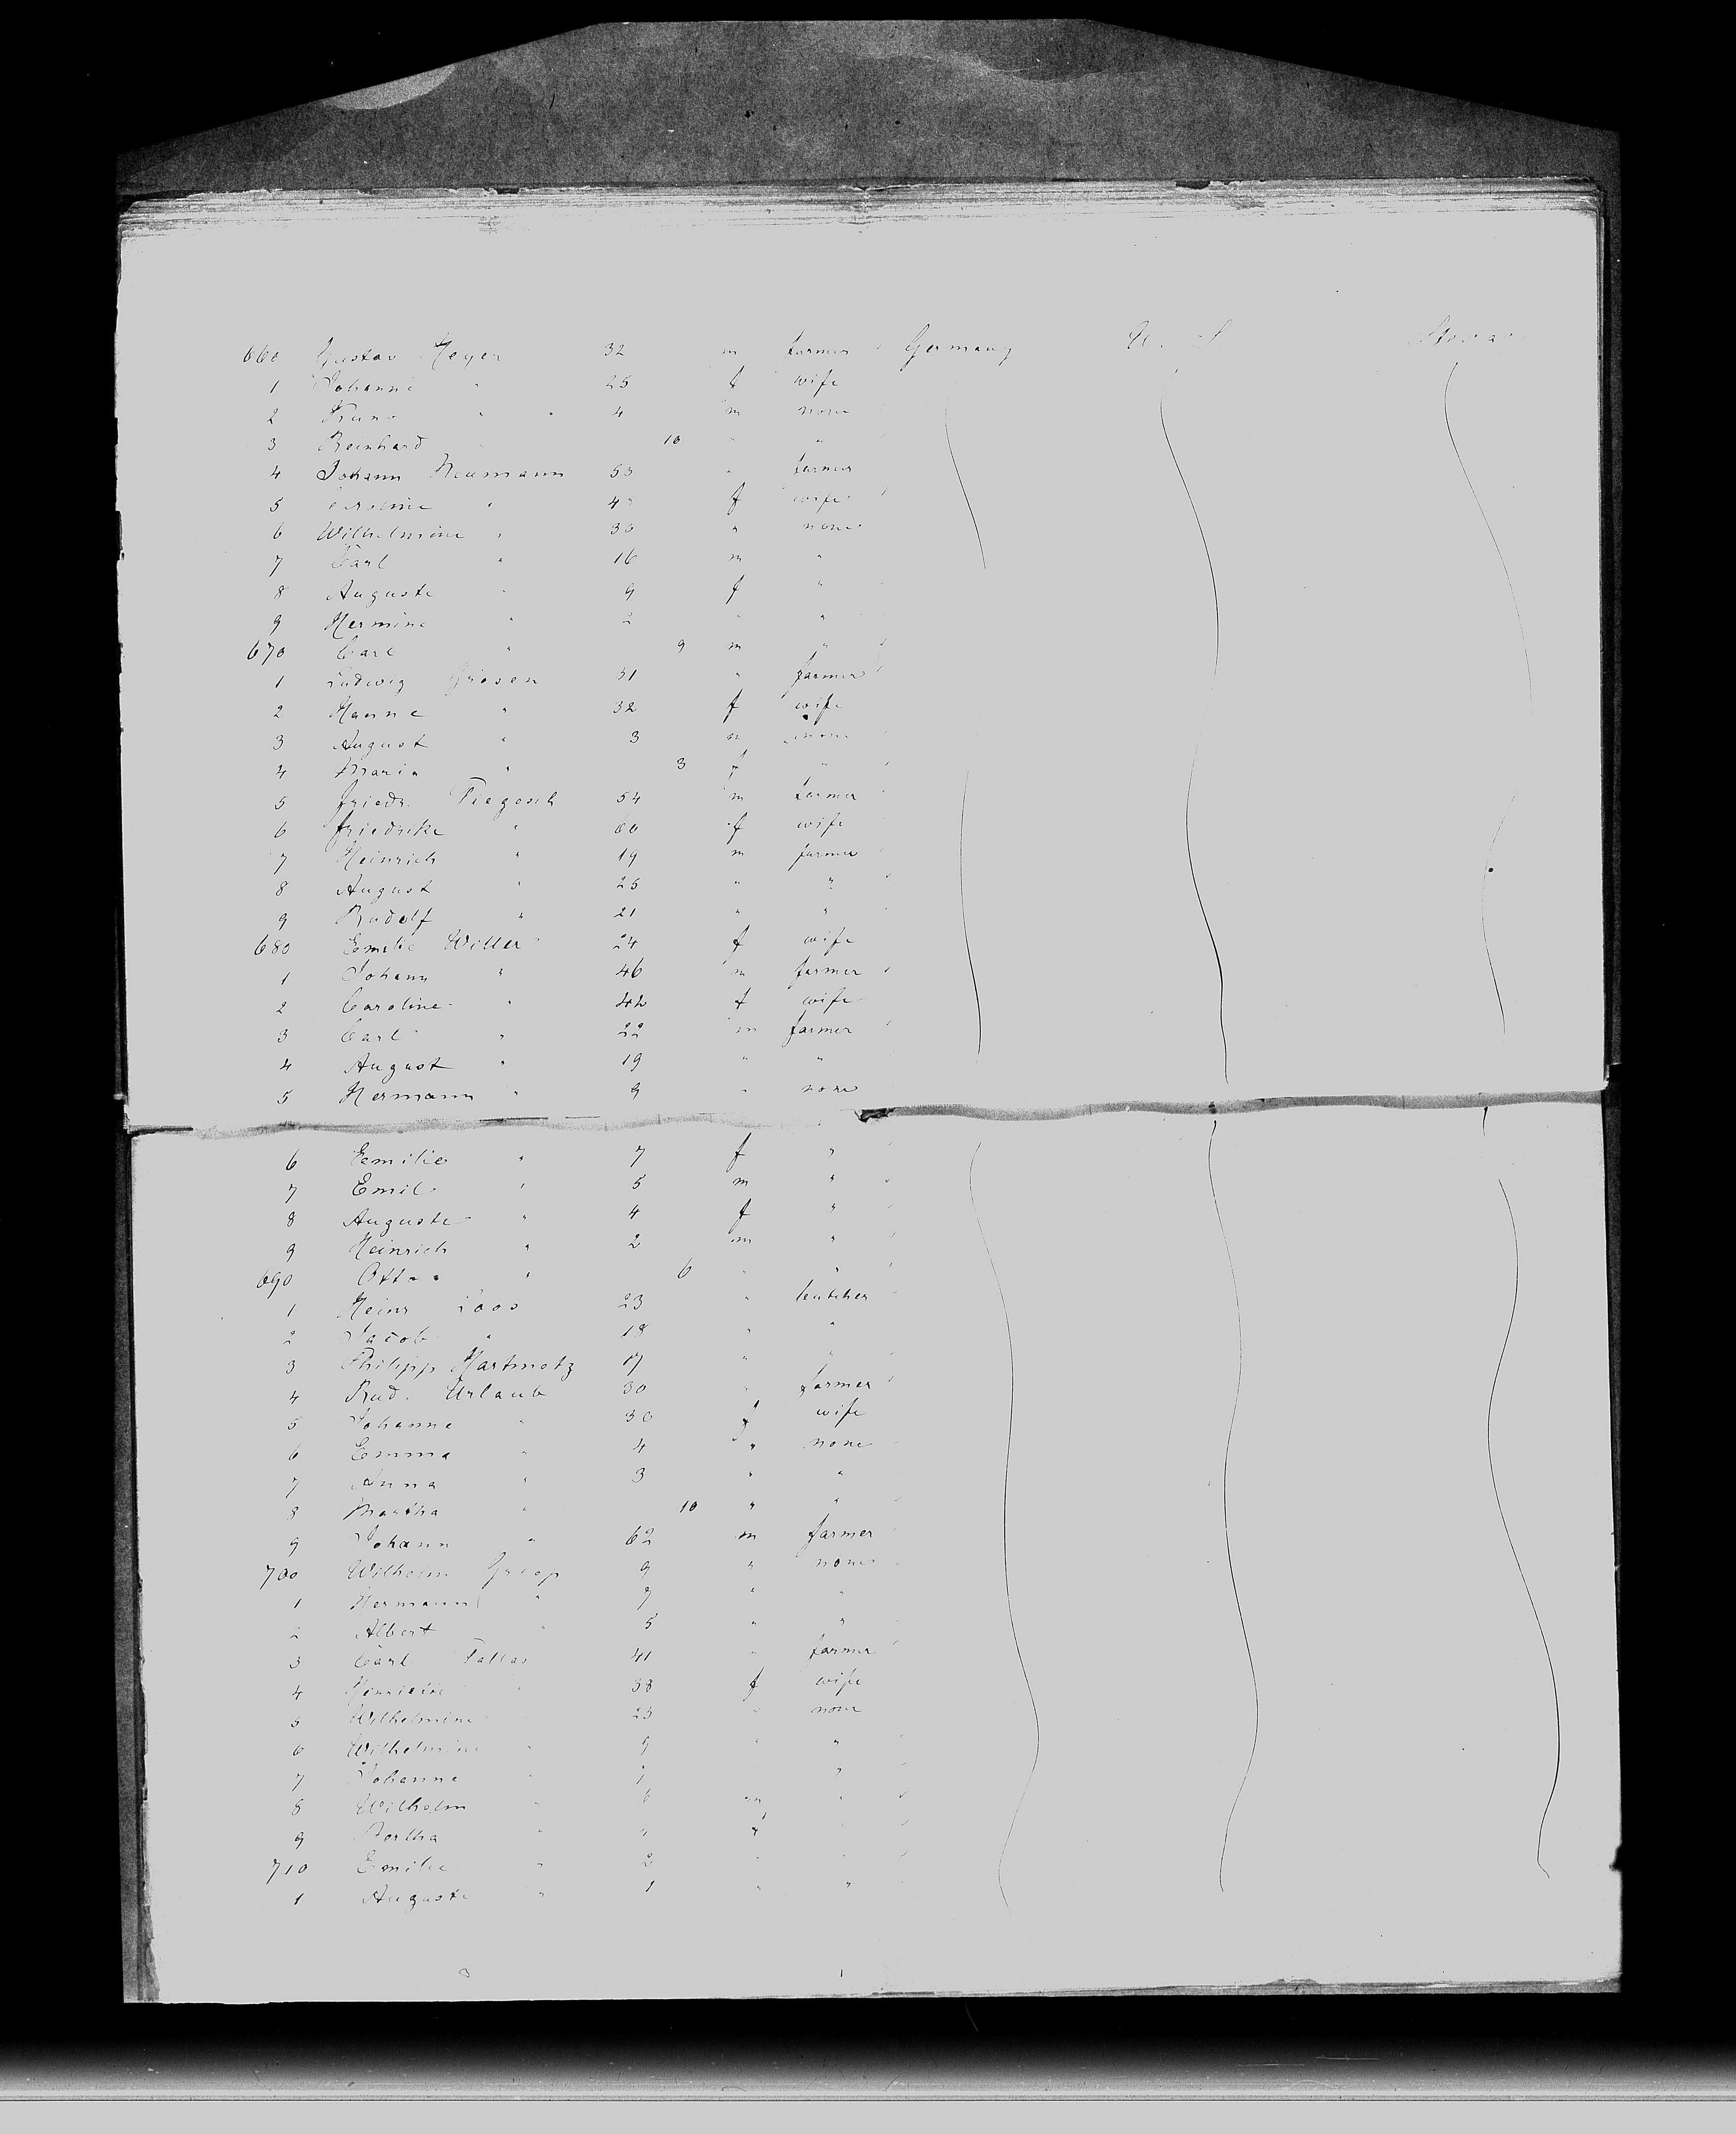 660 Gustav Meyer 32 m farmer Germany
1 Johanne " 25 f wife
2 Bruno " " 4 m none
3 Reinhard " 10 " "
4 Johann Neumann 53 " farmer
5 Caroline " f wife
6 Wilhelmine " 30 " none
7 Carl " 16 m "
8 Auguste " 9 f "
9 Hermine " 2 " "
670 Carl " 9 m "
1 Ludwig 31 " farmer
2 Hanne " 32 f wife
3 August " 3 m none
4 Maria " 3 f "
5 Friedr. 54 m farmer
6 Friedrike " 60 f wife
7 Heinrich " 19 m farmer
8 August " 25 " "
9 Rudolf " 21 " "
680 Emilie Willer 24 f wife
1 Johann " 46 m farmer
2 Caroline " 42 f wife
3 Carl " 22 m farmer
4 August " 19 " "
5 Hermann " 9 " none
6 Emilie " 7 f "
7 Emil " 5 m "
8 Auguste " 4 f "
9 Heinrich " 2 m "
690 Otto " 6 " "
1 Heinr Loos 23 " butcher
2 Jacob " 18 " "
3 Philipp Hartmetz 17 " "
4 Rud. Urlaub 30 " farmer
5 Johanne " 30 f wife
6 Emma " 4 " none
7 Anna " 3 " "
8 Martha " 10 " "
9 Johann " 62 m farmer
700 Wilhelm 9 " none
1 Hermann " 7 " "
2 Albert " 5 " "
3 Carl 41 " farmer
4 Henriette " 38 f wife
5 Wilhelmine 23 " none
6 Wilhelmine " 9 " "
7 Johanne " 7 "
8 Wilhelm " 6 m "
9 Bertha " f "
710 Emilie " 2 " "
1 Auguste " 1 " "